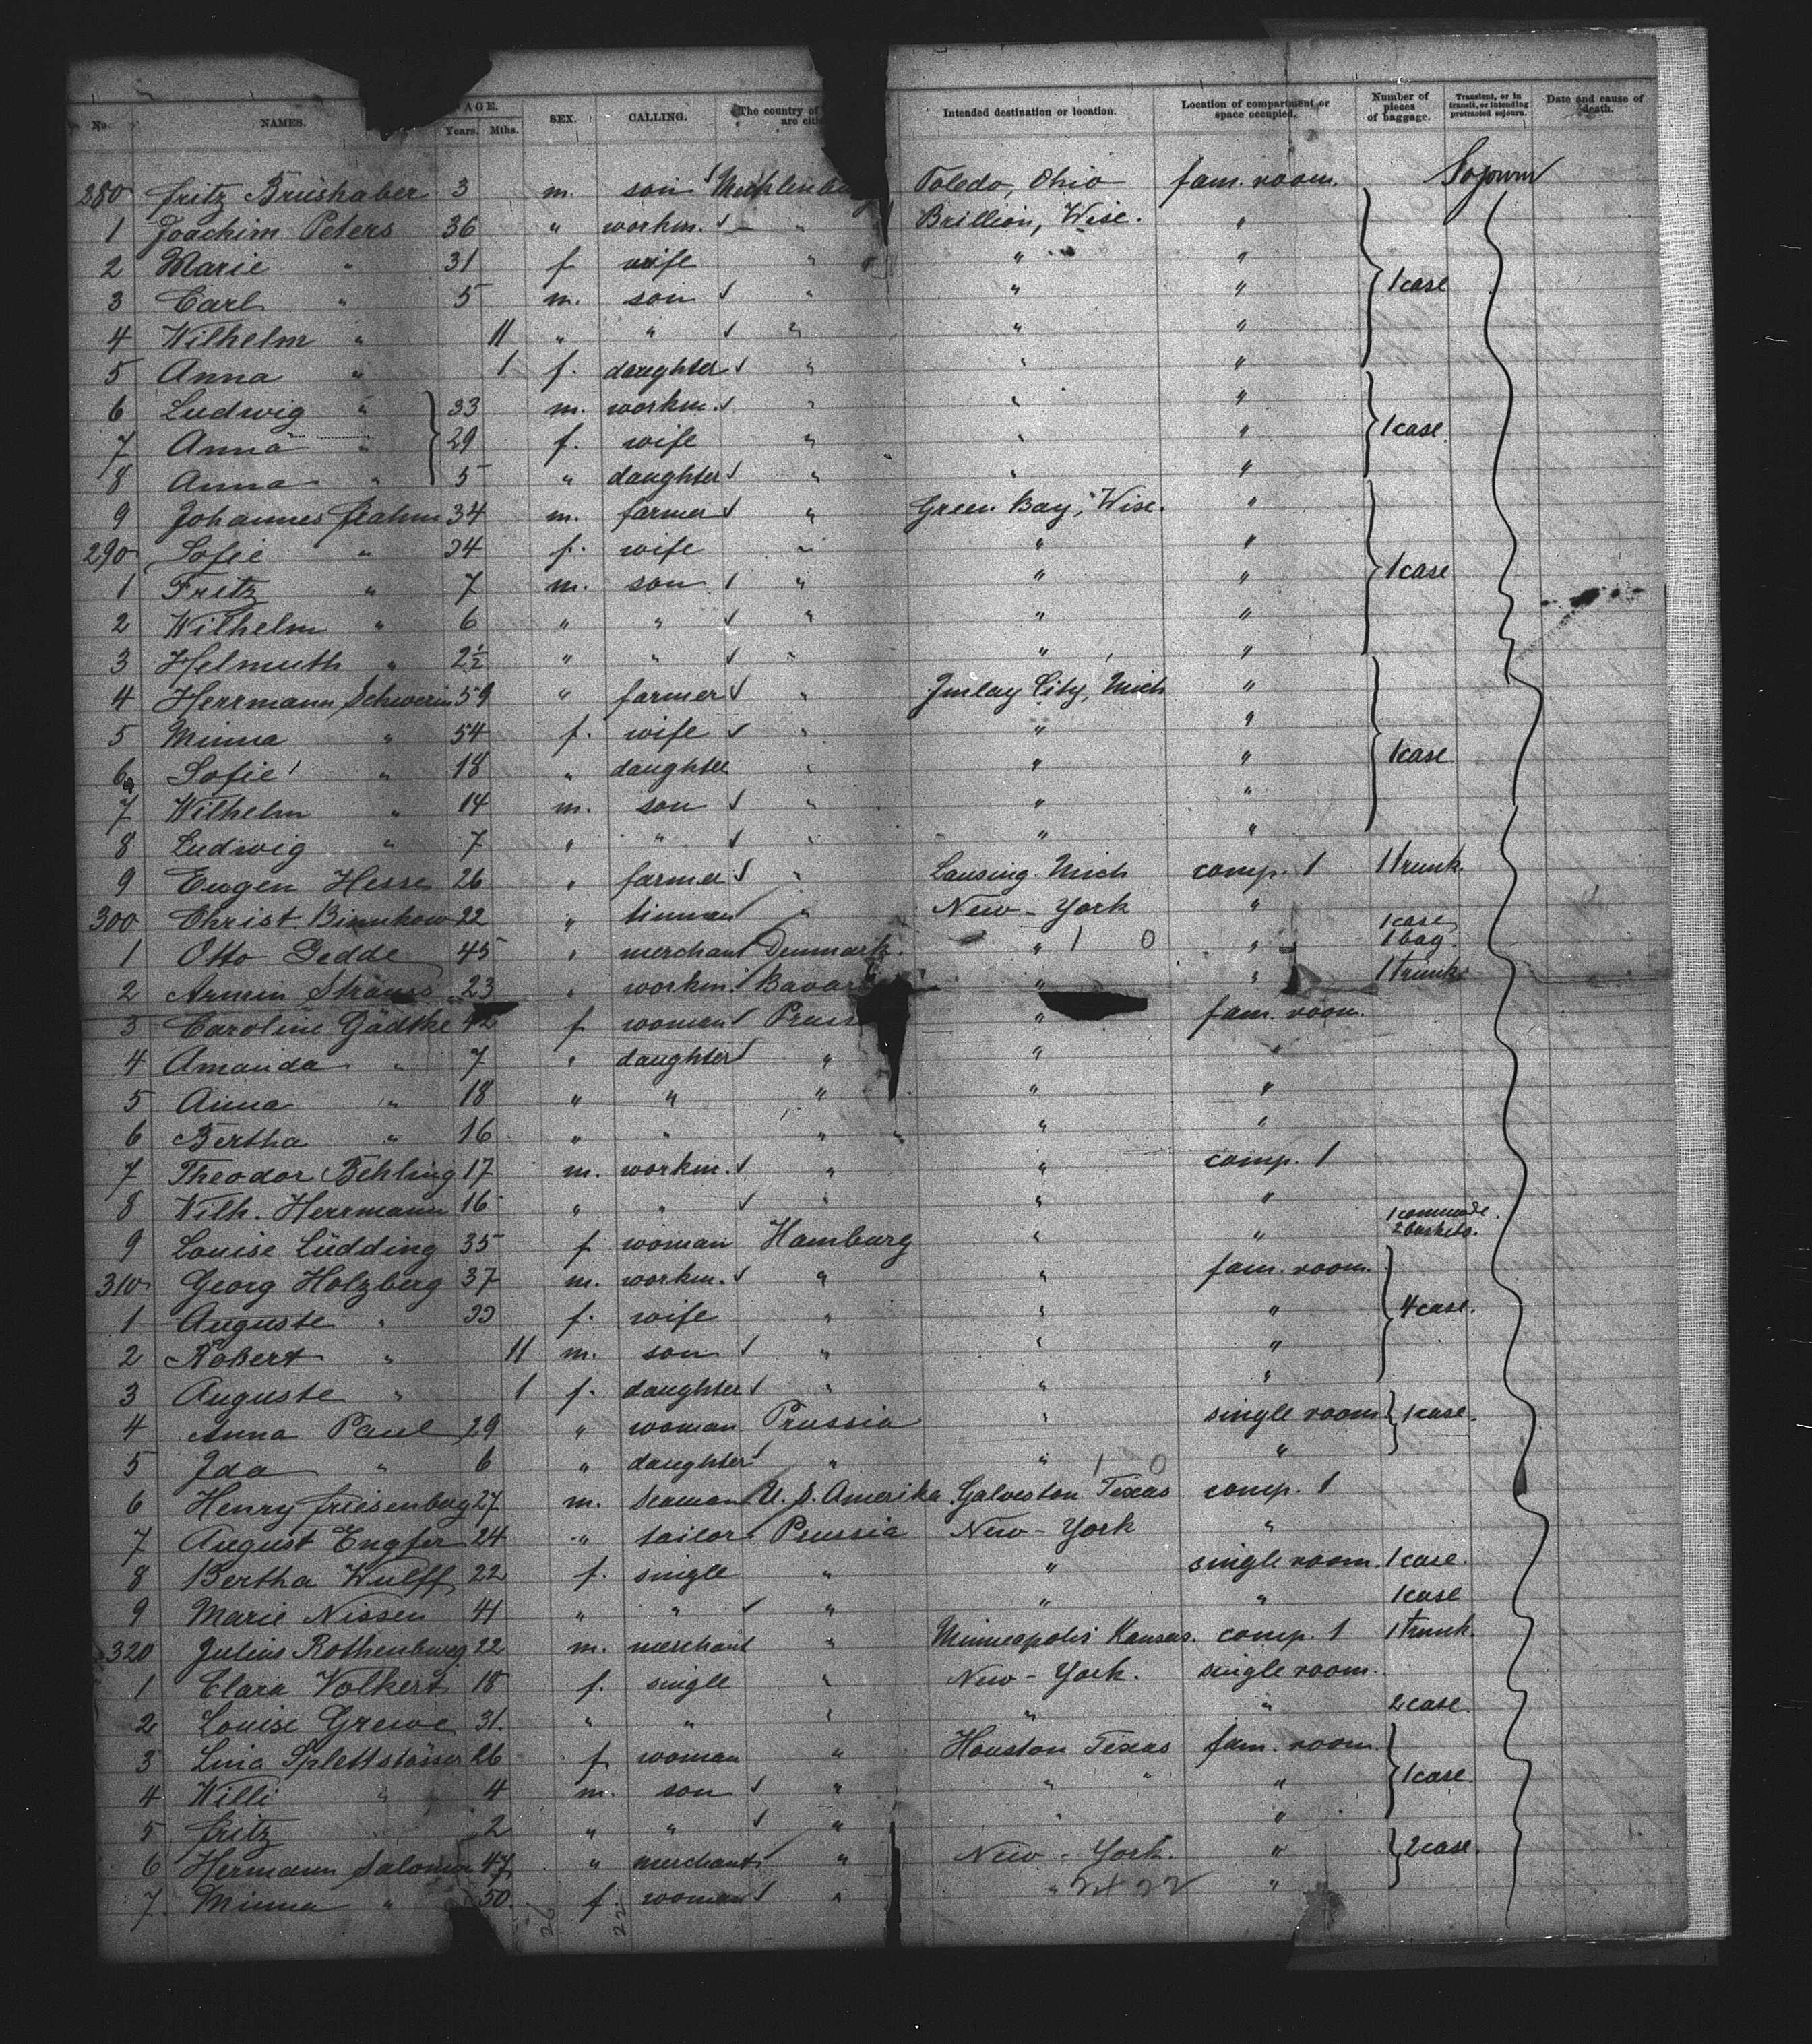 No. NAMES. AGE. Years. Mths. SEX. CALLING. The country of are citi Intended destination or location. Location of compartment or space occupied. Number of pieces of baggage. Transient, or in transit, or intending protracted sojourn. Date and cause of death.
280 Fritz Brüshaber 3 m. son Mecklenbu Toledo, Ohio fam. room. Sojourn
1 Joachim Peters 36 " workm. " Brillion, Wisc. "
2 Marie " 31 f wife " " "
3 Carl " 5 m. son " " " 1 case
4 Wilhelm " 11 " " " " "
5 Anna " 1 f. daughter " " "
6 Ludwig " 33 m. workm. " " "
7 Anna " 29 f. wife " " " 1 case
8 Anna " 5 " daughter " " "
9 Johannes Frahm 34 m. farmer " Green Bay, Wisc. "
290 Sofie " 34 f. wife " " "
1 Fritz " 7 m. son " " " 1 case
2 Wilhelm " 6 " " " " "
3 Helmuth " 2½ " " " " "
4 Herrmann Schwerin 59 " farmer " Imlay City, Mich "
5 Minna " 54 f. wife " " "
6 Sofie " 18 " daughter " " " 1 case
7 Wilhelm " 14 m. son " " "
8 Ludwig " 7 " " " " "
9 Eugen Hesse 26 " farmer " Lansing. Mich comp. 1 1 trunk.
300 Christ. Birnkow 22 " tinman " New-York " 1 case
1 Otto Gedde 45 " merchant Denmark. " 1 0 " 1 bag.
2 Armin Strauss 23 " workm. Bavar " " 1 trunk
3 Caroline Gädtke 42 f woman Pruss " fam. room.
4 Amanda " 7 " daughter " " "
5 Anna " 18 " " " " "
6 Bertha " 16 " " " " "
7 Theodor Behling 17 m. workm. " " comp. 1
8 Wilh. Herrmann 16 " " " " "
9 Louise Lüdding 35 f woman Hamburg " " 1 commode. 2 baskets.
310 Georg Holzberg 37 m. workm. " " fam. room.
1 Auguste " 33 f. wife " " " 4 case.
2 Robert " 11 m. son " " "
3 Auguste " 1 f. daughter " " "
4 Anna Paul 29 " woman Prussia " single room 1 case.
5 Ida " 6 " daughter " " 1 0 "
6 Henry Friesenborg 27 m. seaman U. S. Amerika Galveston Texas comp. 1
7 August Engfer 24 " tailor Prussia New-York "
8 Bertha Wulff 22 f. single " " single room. 1 case.
9 Marie Nissen 41 " " " " " 1 case
320 Julius Rothenburg 22 m. merchant " Minneapolis Kansas. comp. 1 1 trunk.
1 Clara Volkert 18 f. single " New-York. single room.
2 Louise Grewe 31. " " " " " 2 case.
3 Lina Splettstösser 26 f woman " Houston Texas fam. room.
4 Willi " 4 m. son " " " " 1 case.
5 Fritz 2 " " " " "
6 Hermann Salomon 47 " merchant " New-York. " 2 case.
7. Minna " 50. f. woman " " "
26 22